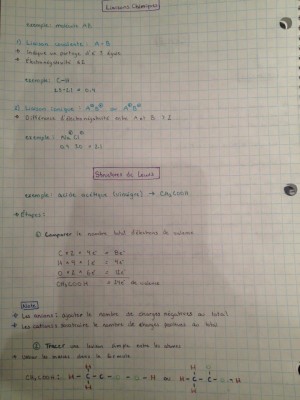 Liaisons Chimiques
exemple: molécule AB
1) Liaison covalente: A-B
→ Implique un partage d'e⁻ égale
→ Électronégativité ≤2
exemple: C-H
2.5-2.1 = 0.4
2) Liaison ionique: A⊕B⊖ ou A⊖B⊕
→ Différence d'électronégativité entre A et B > 2
exemple: Na⊕Cl⊖
0.9 3.0 = 2.1
Structures de Lewis
exemple: Acide acétique (vinaigre) → CH₃COOH
→ Étapes:
① Computer le nombre total d'électrons de valence
C = 2 × 4e⁻ = 8e⁻
H = 4 × 1e⁻ = 4e⁻
O = 2 × 6e⁻ = 12e⁻
CH₃COOH = 24e⁻ de valence
Note
→ Les anions: ajouter le nombre de charges négatives au total
→ Les cations: soustraire le nombre de charges positives du total
② Tracer une liaison simple entre les atomes
→ la formule
CH₃COOH: H-C-C-O-O-H ou H-C-C-O-H